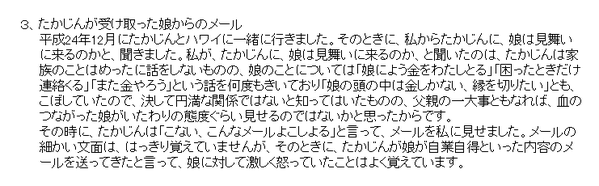 ３、たかじんが受け取った娘からのメール
平成24年12月にたかじんとハワイに一緒に行きました。そのときに、私からたかじんに、娘は見舞い
に来るのかと、聞きました。私が、たかじんに、娘は見舞いに来るのか、と聞いたのは、たかじんは家
族のことはめったに話をしないものの、娘のことについては「娘によう金をわたしとる」「困ったときだけ
連絡くる」「また金やろう」という話を何度もきいており「娘の頭の中は金しかない、縁を切りたい」とも、
こぼしていたので、決して円満な関係ではないと知ってはいたものの、父親の一大事ともなれば、血の
つながった娘がいたわりの態度ぐらい見せるのではないかと思ったからです。
その時に、たかじんは「こない、こんなメールよこしよる」と言って、メールを私に見せました。メールの
細かい文面は、はっきり覚えていませんが、そのときに、たかじんが娘が自業自得といった内容のメ
ールを送ってきたと言って、娘に対して激しく怒っていたことはよく覚えています。